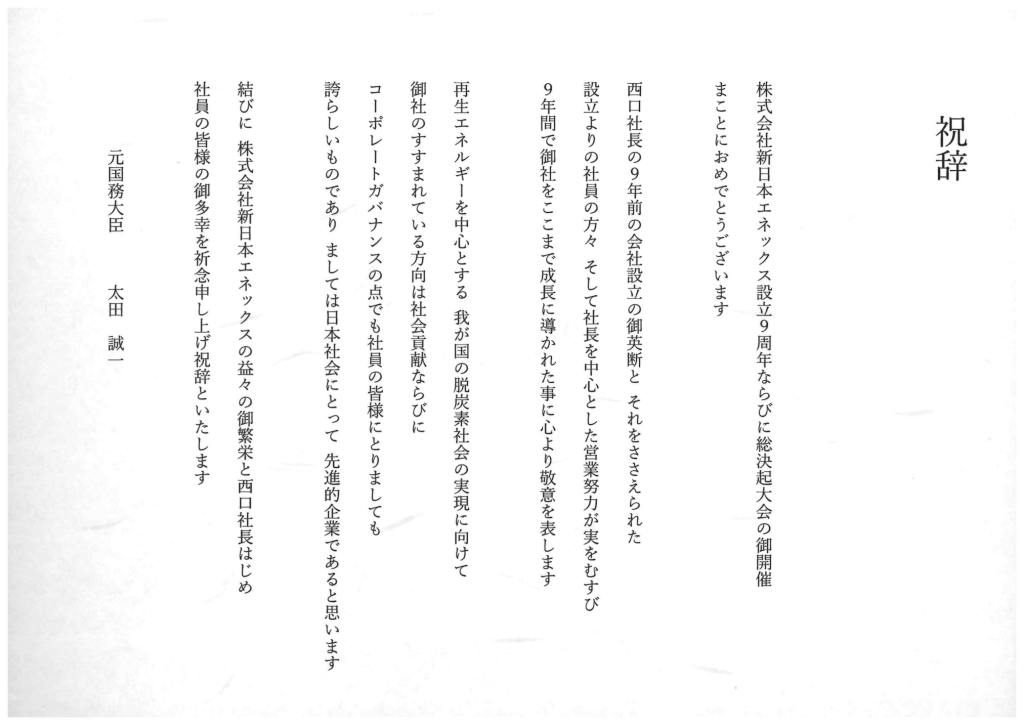 祝辞
株式会社新日本エネックス設立９周年ならびに総決起大会の御開催
まことにおめでとうございます
西口社長の９年前の会社設立の御英断と それをささえられた
設立よりの社員の方々 そして社長を中心とした営業努力が実をむすび
９年間で御社をここまで成長に導かれた事に心より敬意を表します
再生エネルギーを中心とする 我が国の脱炭素社会の実現に向けて
御社のすすまれている方向は社会貢献ならびに
コーポレートガバナンスの点でも社員の皆様にとりましても
誇らしいものであり ましては日本社会にとって 先進的企業であると思います
結びに 株式会社新日本エネックスの益々の御繁栄と西口社長はじめ
社員の皆様の御多幸を祈念申し上げ祝辞といたします
元国務大臣 太田 誠一